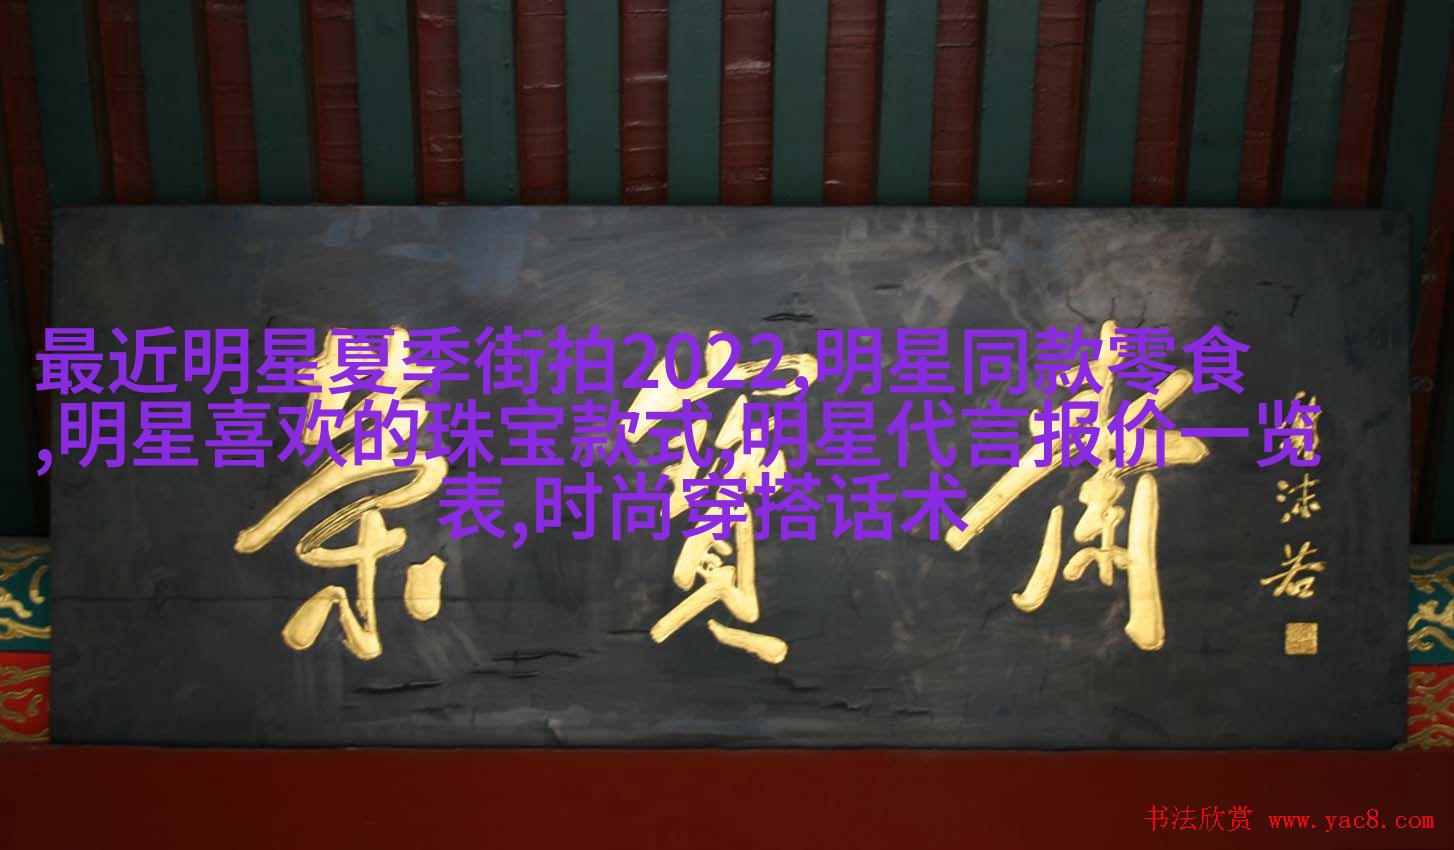 最近明星夏季街拍2022,明星同款零食
,明星喜欢的珠宝款式,明星代言报价一览
表,时尚穿搭话术
榮寶齋
郭沫若
书法欣赏 www.yac8.com